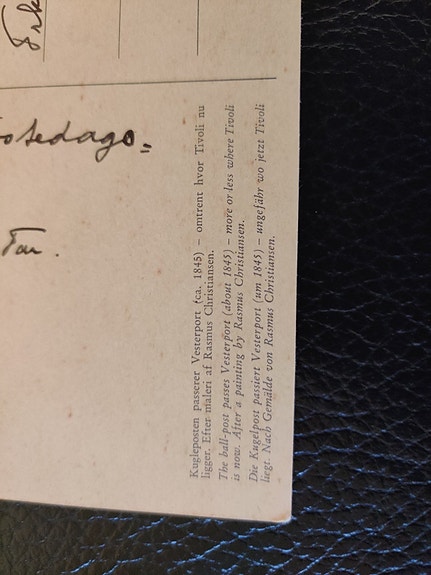 Kugleposten passerer Vesterport (ca. 1845) – omtrent hvor Tivoli nu
ligger. Efter maleri af Rasmus Christiansen.
The ball-post passes Vesterport (about 1845) – more or less where Tivoli
is now. After a painting by Rasmus Christiansen.
Die Kugelpost passiert Vesterport (um 1845) – ungefähr wo jetzt Tivoli
liegt. Nach Gemälde von Rasmus Christiansen.